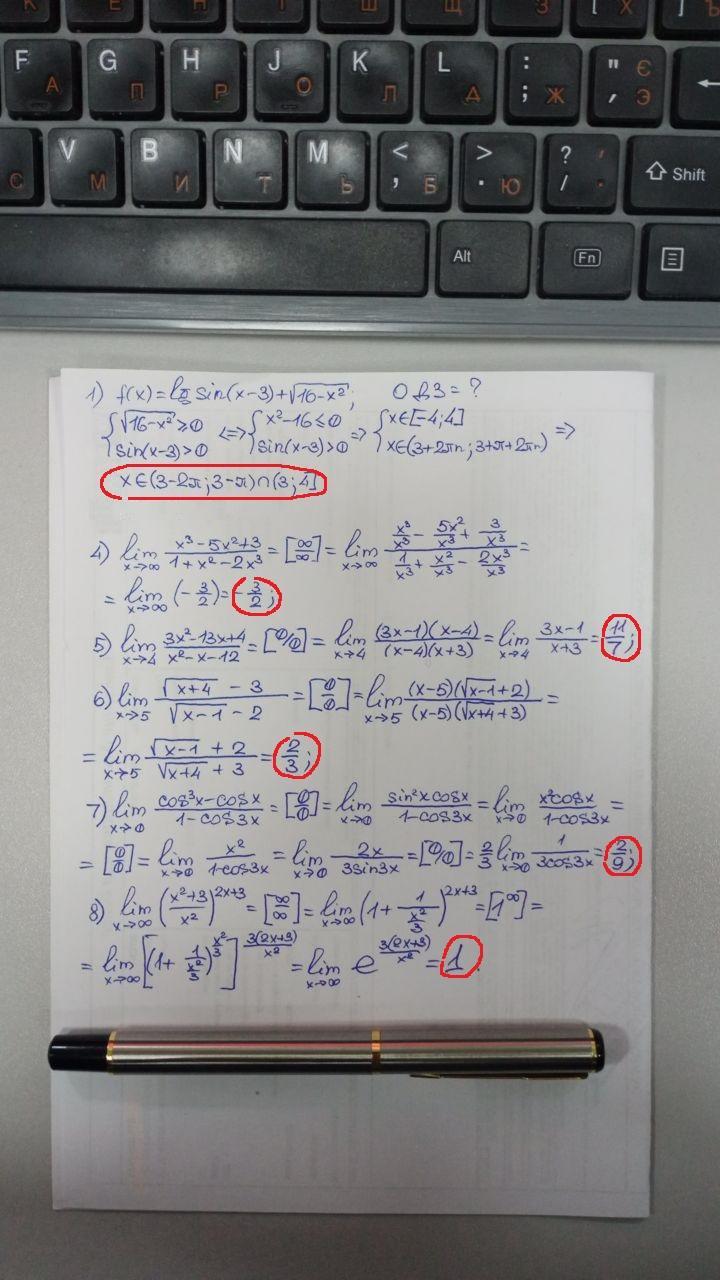 F А G П H Р J О K Л L Д : ; Ж " ' Є Э ←
С V М B И N Т M Ь < , Б > . Ю ? / Shift
Alt Fn
1) f(x)=lg sin(x-3)+√(16-x²); ОДЗ=?
{√(16-x²)≥0 <=> {x²-16≤0 => {x∈[-4;4]
{sin(x-3)>0 {sin(x-3)>0 {x∈(3+2πn; 3+π+2πn) =>
x∈(3-2π; 3-π)∩(3; 4]
4) lim x→∞ (x³-5x²+3)/(1+x²-2x³) = [∞/∞] = lim x→∞ (x³/x³ - 5x²/x³ + 3/x³)/(1/x³ + x²/x³ - 2x³/x³) =
= lim x→∞ (-3/2) = -3/2;
5) lim x→4 (3x²-13x+4)/(x²-x-12) = [0/0] = lim x→4 (3x-1)(x-4)/(x-4)(x+3) = lim x→4 (3x-1)/(x+3) = 11/7;
6) lim x→5 (√(x+4) - 3)/(√(x-1) - 2) = [0/0] = lim x→5 (x-5)(√(x-1)+2)/(x-5)(√(x+4)+3) =
= lim x→5 (√(x-1) + 2)/(√(x+4) + 3) = 2/3;
7) lim x→0 (cos³x-cosx)/(1-cos3x) = [0/0] = lim x→0 sin²xcosx/(1-cos3x) = lim x→0 x²cosx/(1-cos3x) =
= [0/0] = lim x→0 x²/(1-cos3x) = lim x→0 2x/(3sin3x) = [0/0] = 2/3 lim x→0 1/(3cos3x) = 2/9;
8) lim x→∞ ((x²+3)/x²)^(2x+3) = [∞/∞] = lim x→∞ (1+1/(x²/3))^(2x+3) = [1^∞] =
= lim x→∞ [(1+1/(x²/3))^(x²/3)]^(3(2x+3)/x²) = lim x→∞ e^(3(2x+3)/x²) = 1.